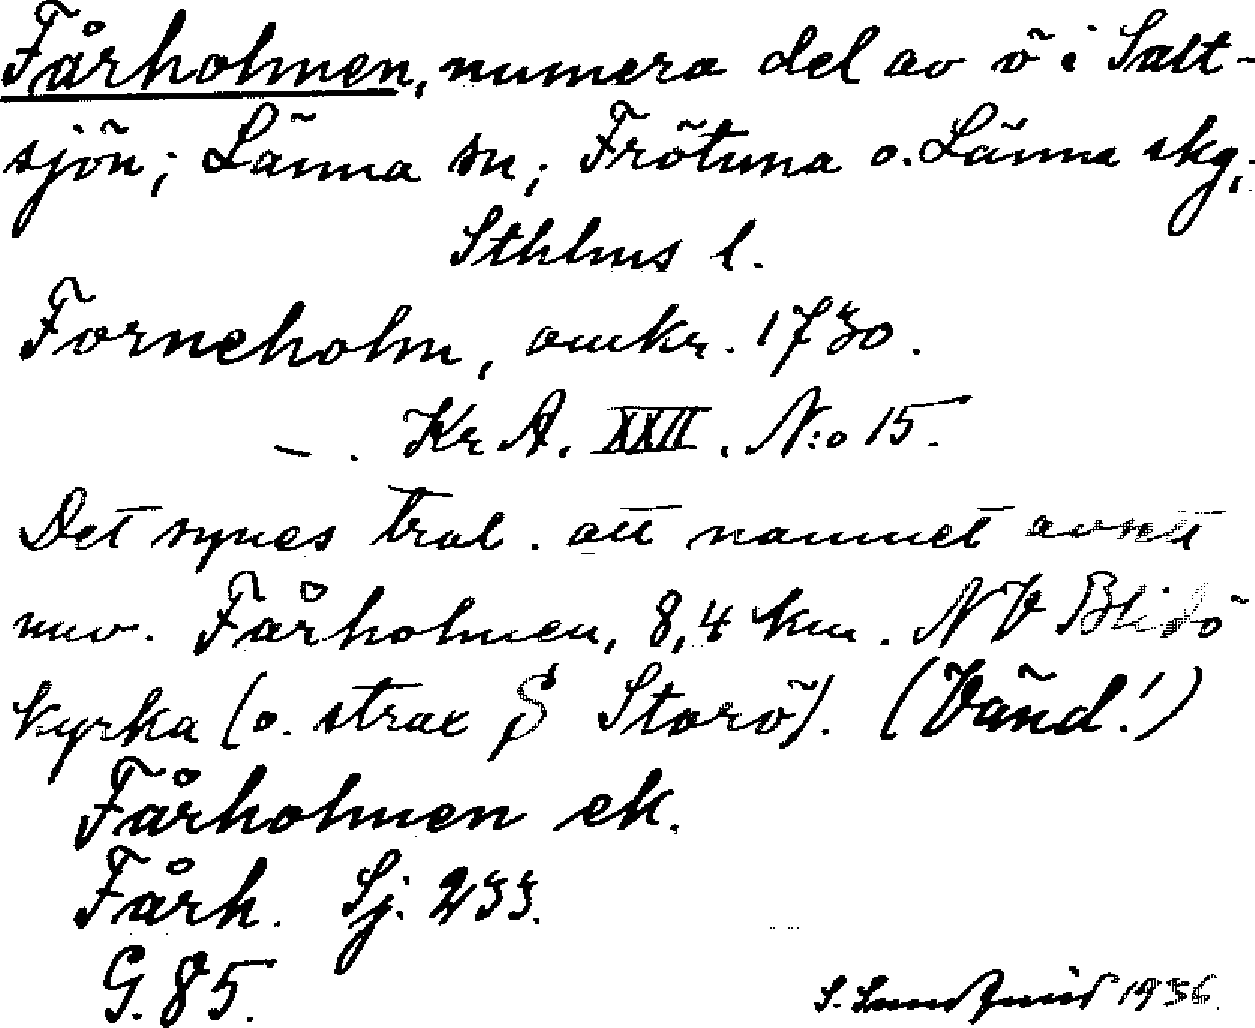 Fårholmen, numera del av ö i Salt-
sjön; Länna sn; Frötuna o. Länna skg;
Sthlms l.
Forneholm, omkr. 1730.
–. Kr A. XXII. N:o 15.
Det synes tral. att namnet avsett
nuv. Fårholmen, 8,4 km. NV Blidö
kyrka (o. strax S Storö). (Vänd!)
Fårholmen ek.
Fårh. Sj. 233.
G. 85.
S. 1936.